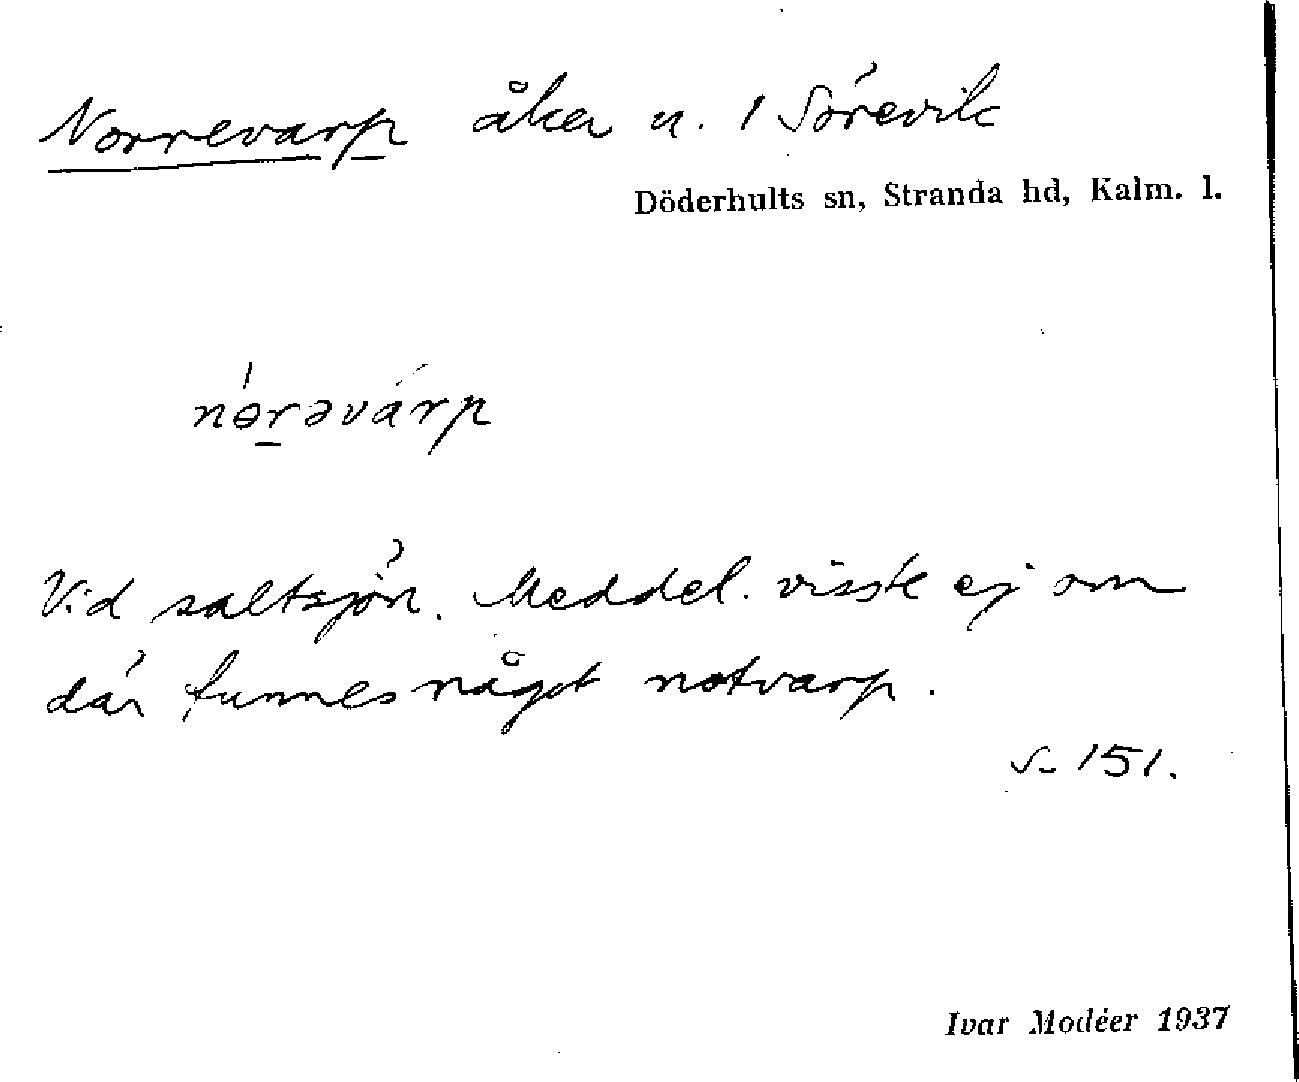 Norrevarp åker u. 1 Sörevik
Döderhults sn, Stranda hd, Kalm. l.
nɵ́rəvárp
Vid saltsjön. Meddel. visste ej om
där funnes något notvarp.
S. 151.
Ivar Modéer 1937